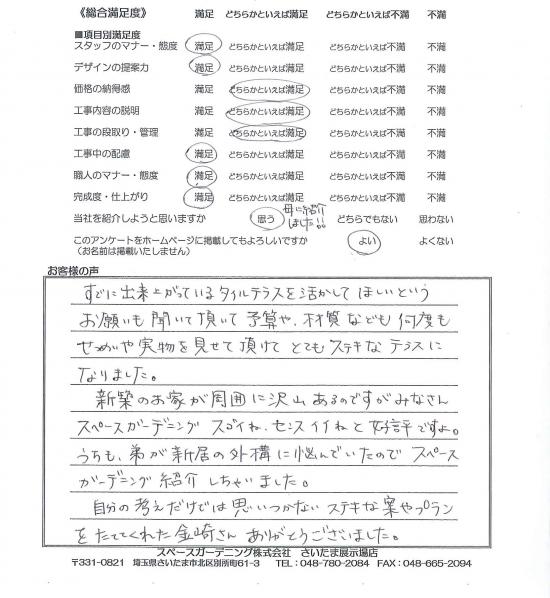 《総合満足度》 満足 どちらかといえば満足 どちらかといえば不満 不満
■項目別満足度
スタッフのマナー・態度 満足 どちらかといえば満足 どちらかといえば不満 不満
デザインの提案力 満足 どちらかといえば満足 どちらかといえば不満 不満
価格の納得感 満足 どちらかといえば満足 どちらかといえば不満 不満
工事内容の説明 満足 どちらかといえば満足 どちらかといえば不満 不満
工事の段取り・管理 満足 どちらかといえば満足 どちらかといえば不満 不満
工事中の配慮 満足 どちらかといえば満足 どちらかといえば不満 不満
職人のマナー・態度 満足 どちらかといえば満足 どちらかといえば不満 不満
完成度・仕上がり 満足 どちらかといえば満足 どちらかといえば不満 不満
母に紹介
しました!!
当社を紹介しようと思いますか 思う どちらでもない 思わない
このアンケートをホームページに掲載してもよろしいですか よい よくない
(お名前は掲載いたしません)
お客様の声
すでに出来上がっているタイルテラスを活かしてほしいという
お願いも聞いて頂いて予算や、材質なども何度も
せつめいや実物を見せて頂けてとてもステキなテラスに
なりました。
新築のお家が周囲に沢山あるのですがみなさん
スペースガーデニングスゴイね、センスイイねと好評ですよ。
うちも、弟が新居の外構に悩んでいたのでスペース
ガーデニング紹介しちゃいました。
自分の考えだけでは思いつかないステキな案やプラン
をたててくれた金崎さんありがとうございました。
スペースガーデニング株式会社 さいたま展示場店
〒331-0821 埼玉県さいたま市北区別所町61-3 TEL:048-780-2084 FAX:048-665-2094